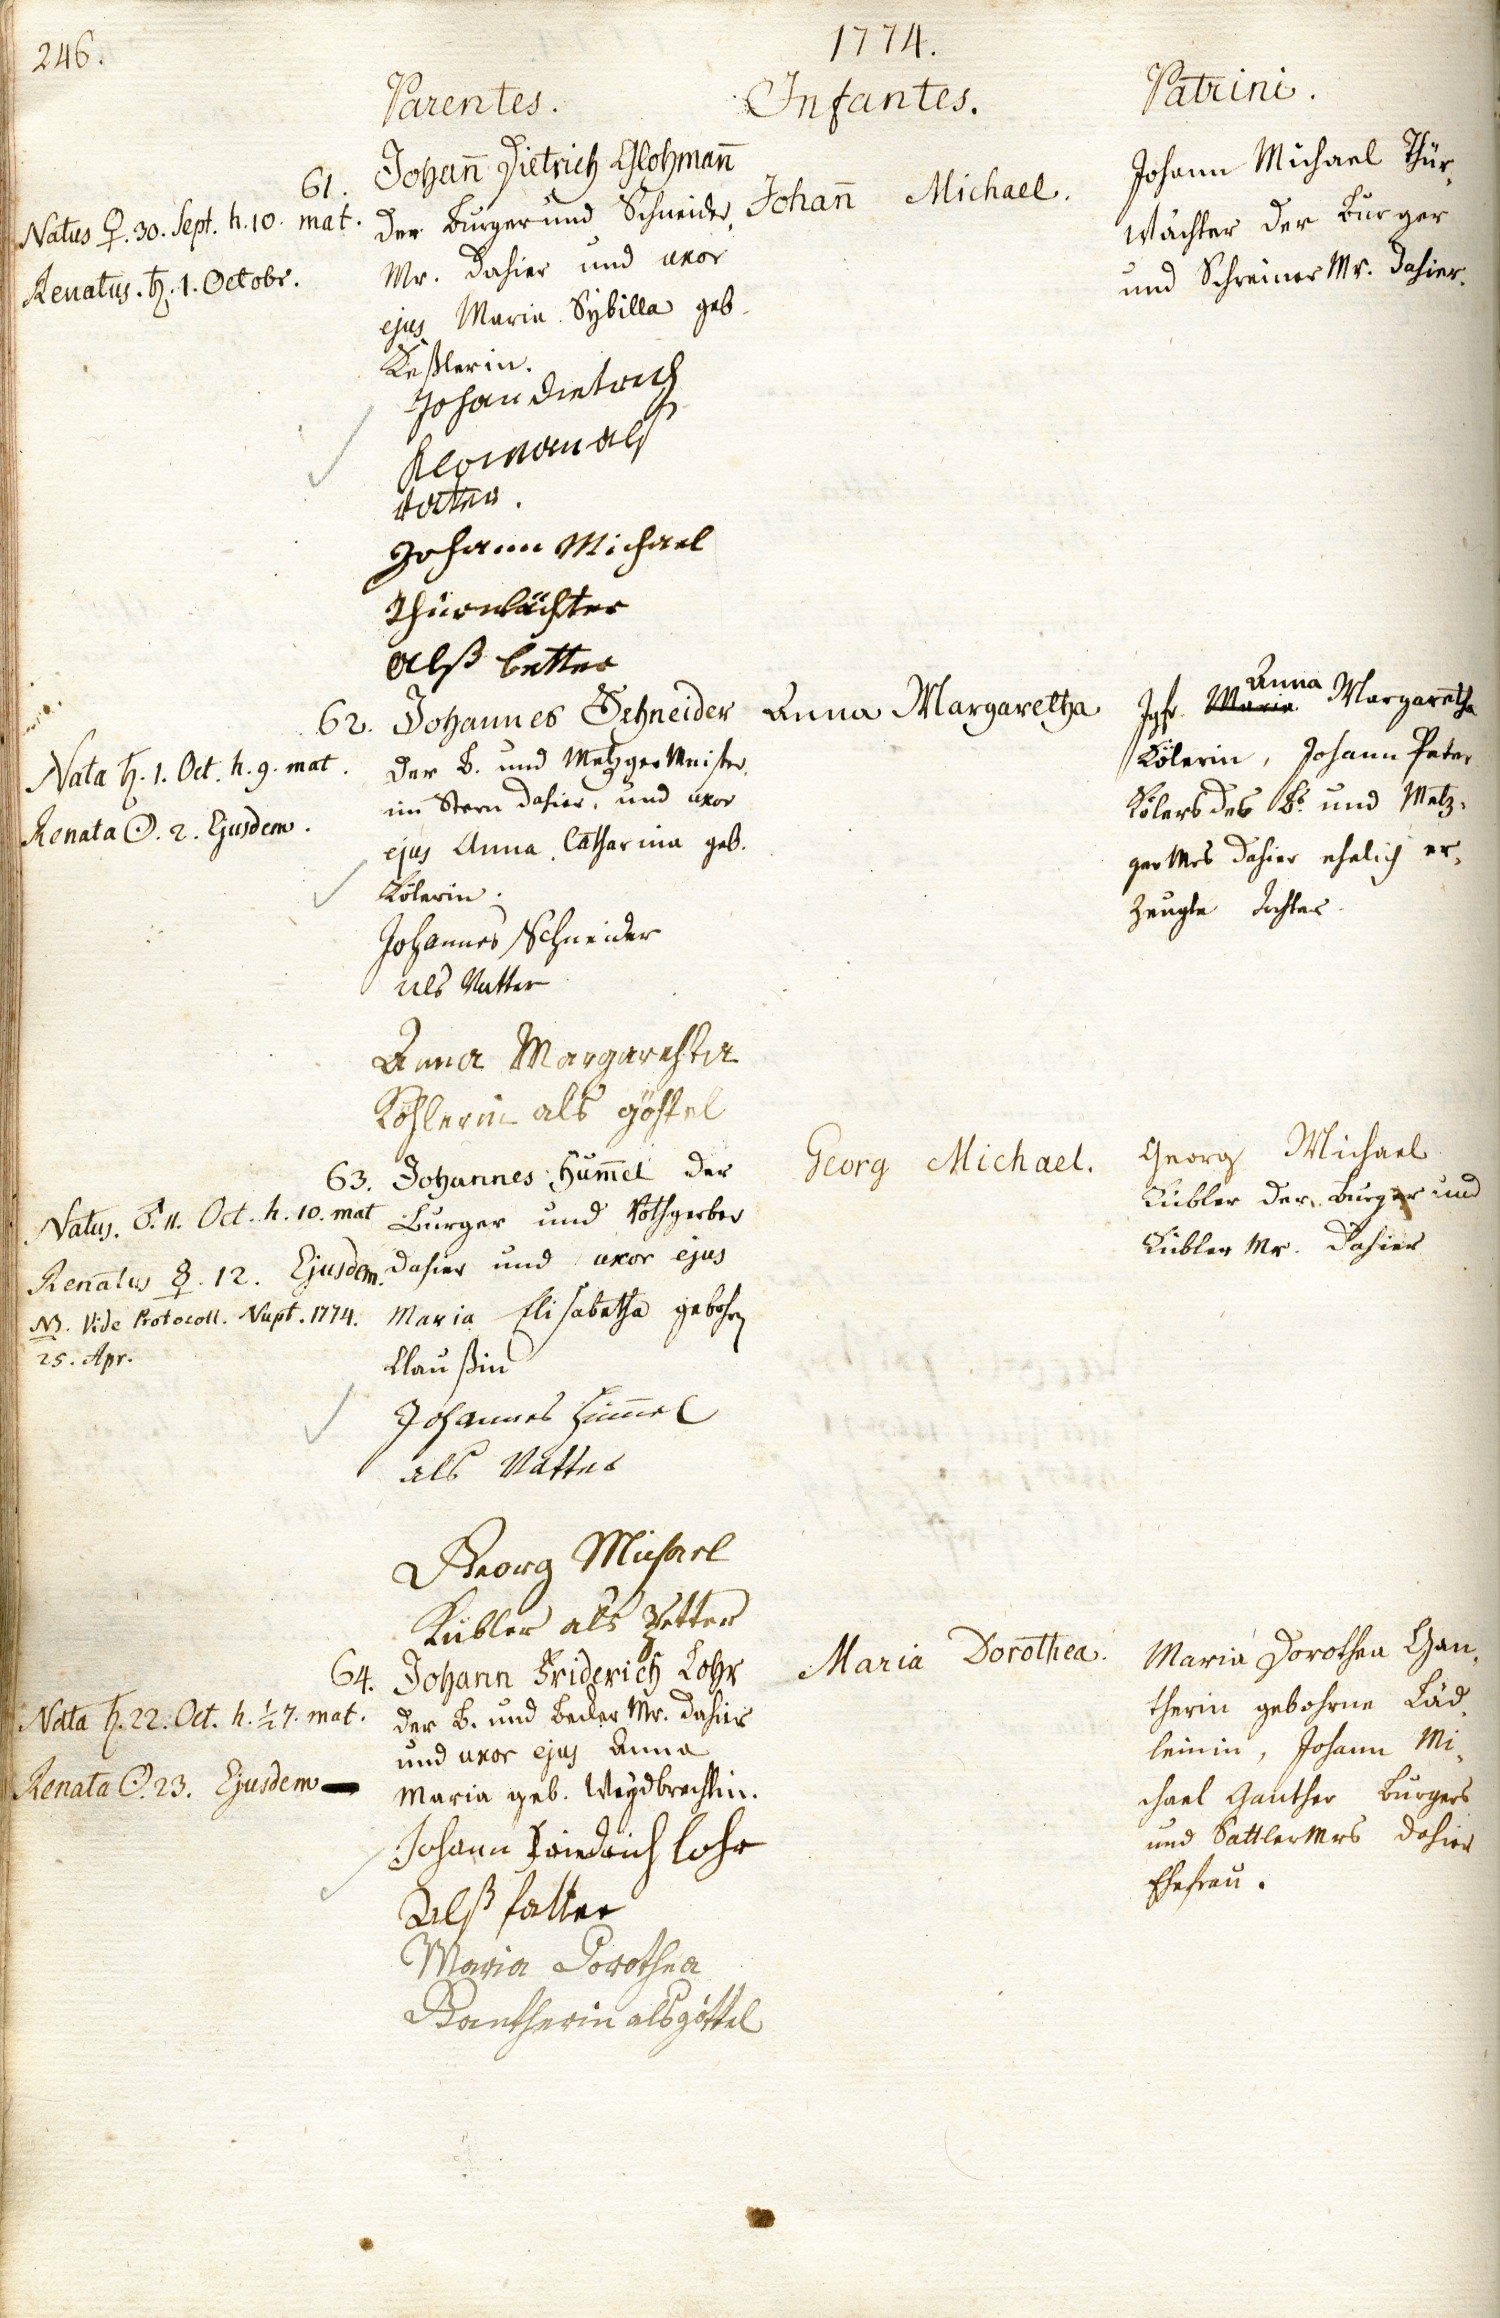 246.
1774.
Parentes.
Infantes.
Patrini.
61.
Natus ♀. 30. Sept. h. 10. mat.
Renatus. ♄. 1. Octobr.
Johan̄ Dietrich Glohman̄
der Burger und Schneider,
Mr. dahier und uxor
ejus Maria Sybilla geb.
Keßlerin.
Johan dietrich
Kloman alß
vatter.
Johann Michael
Thürwächter
alß vetter
Johan̄ Michael.
Johann Michael Thür,
wächter der Burger
und Schreiner Mr. dahier.
62.
Nata ♄. 1. Oct. h. 9. mat.
Renata ☉. 2. Ejusdem.
Johannes Schneider
der B. und Metzger Meister,
im Stern dahier, und uxor
ejus Anna Catharina geb.
Kölerin.
Johannes Schneider
als Vatter
Anna Margaretha
Köhlerin als göthel
Anna Margaretha
Anna
Jgfr. Maria Margaretha
Kölerin, Johann Peter
Kölers des B. und Metz,
ger Mrs dahier ehelich er,
zeugte Tochter.
63.
Natus. ♂. 11. Oct. h. 10. mat
Renatus ☿. 12. Ejusdem.
NB. Vide Protocoll. Nupt. 1774.
25. Apr.
Johannes Hum̄el der
Burger und Rothgerber
dahier und uxor ejus
Maria Elisabetha gebohrn
Claußin
Johannes Hum̄el
als Vatter
Georg Michael
Kübler als Petter
Georg Michael.
Georg Michael
Kübler der Burger und
Kübler Mr. dahier
64.
Nata ♄. 22. Oct. h. ½ 7. mat.
Renata ☉. 23. Ejusdem
Johann Friderich Lohr
der B. und Becker Mr. dahier
und uxor ejus Anna
Maria geb. Weydbrechtin.
Johann Friedrich lohr
Alß fatter
Maria Dorothea
Gantherin als göttel
Maria Dorothea.
Maria Dorothea Gan,
therin gebohrne Läd,
leinin, Johann Mi,
chael Ganther Burgers
und Sattler Mrs dahier
Ehefrau.